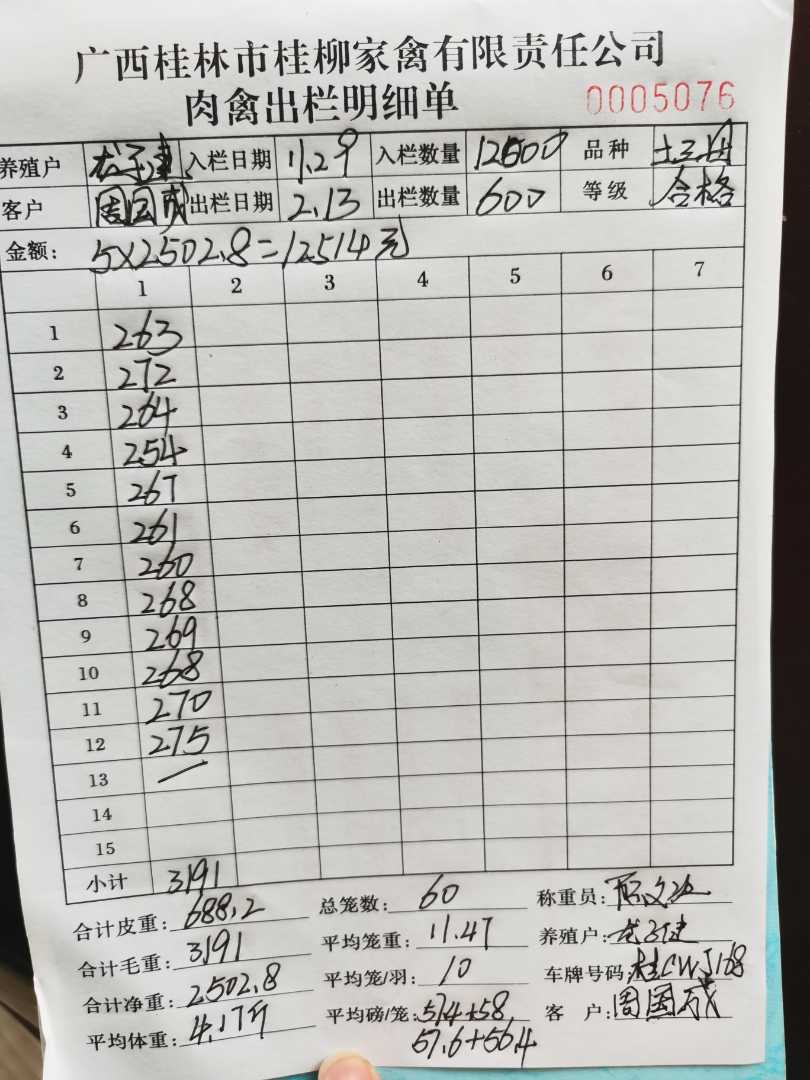 广西桂林市桂柳家禽有限责任公司
肉禽出栏明细单 0005076
养殖户 龙子建 入栏日期 11.29 入栏数量 12600 品种
客户 周国成 出栏日期 2.13 出栏数量 600 等级 合格
金额: 5×2502.8=12514元
1 2 3 4 5 6 7
1 263
2 272
3 264
4 254
5 267
6 261
7 260
8 268
9 269
10 268
11 270
12 275
13 —
14
15
小计 3191
合计皮重: 688.2 总笼数: 60 称重员:
合计毛重: 3191 平均笼重: 11.47 养殖户: 龙子建
合计净重: 2502.8 平均笼/羽: 10 车牌号码: 桂CWJ168
平均体重: 4.17斤 平均磅/笼: 57.4+58 客 户: 周国成
57.6+56.4